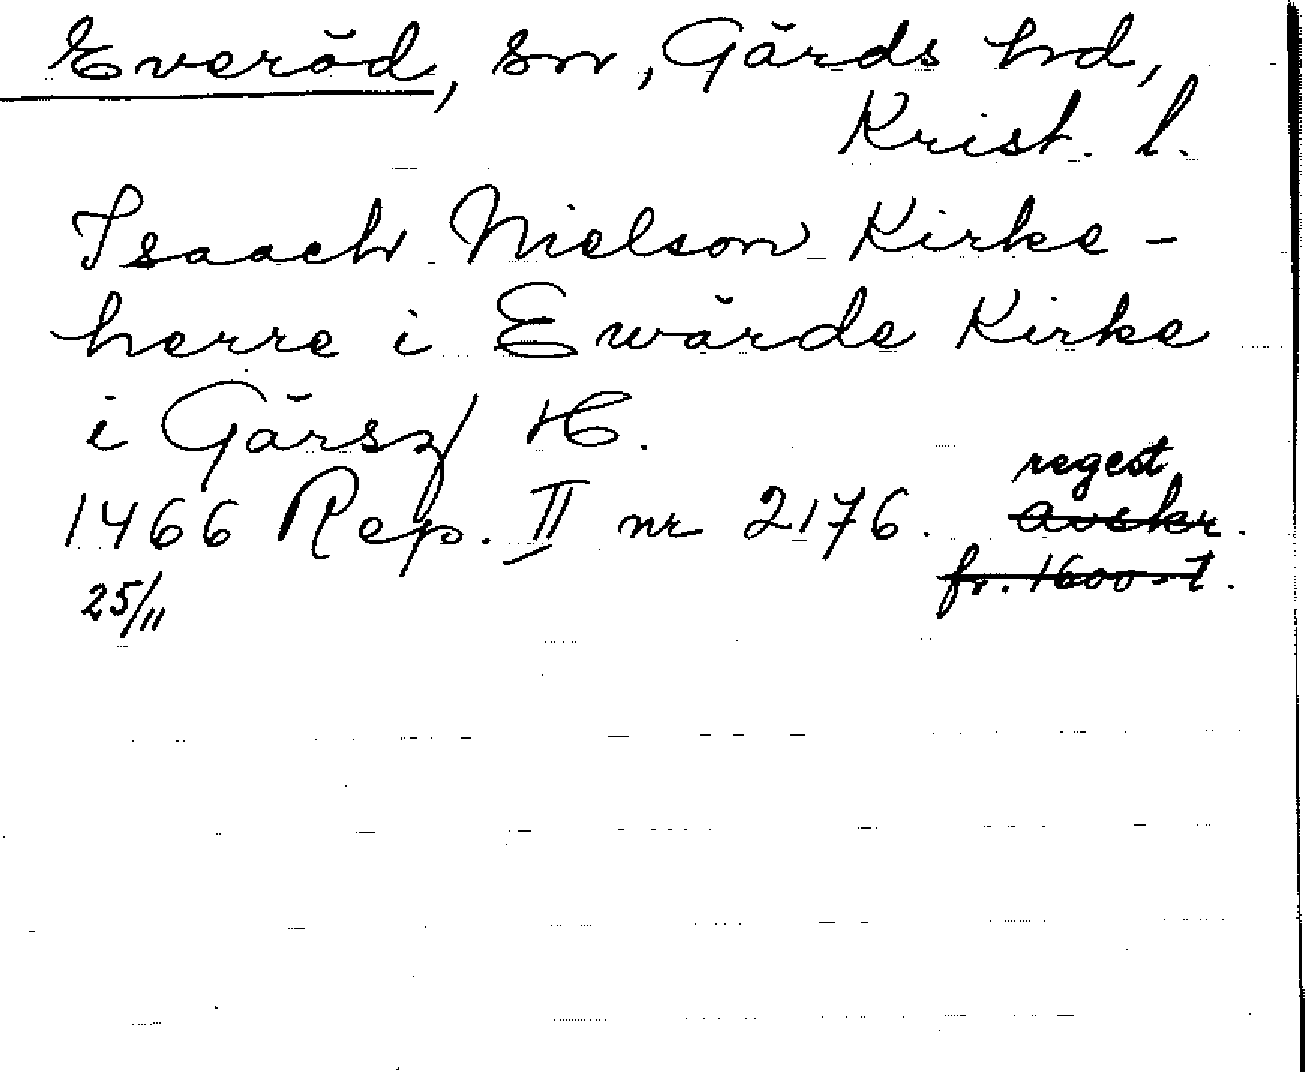 Everöd, sn, Gärds hd,
Krist. l.
Isaach Nielson Kirke-
herre i Ewärde Kirke
i Gärsz H.
regest
1466 Rep. II nr 2176. avskr.
25/11 fr. 1600-t.